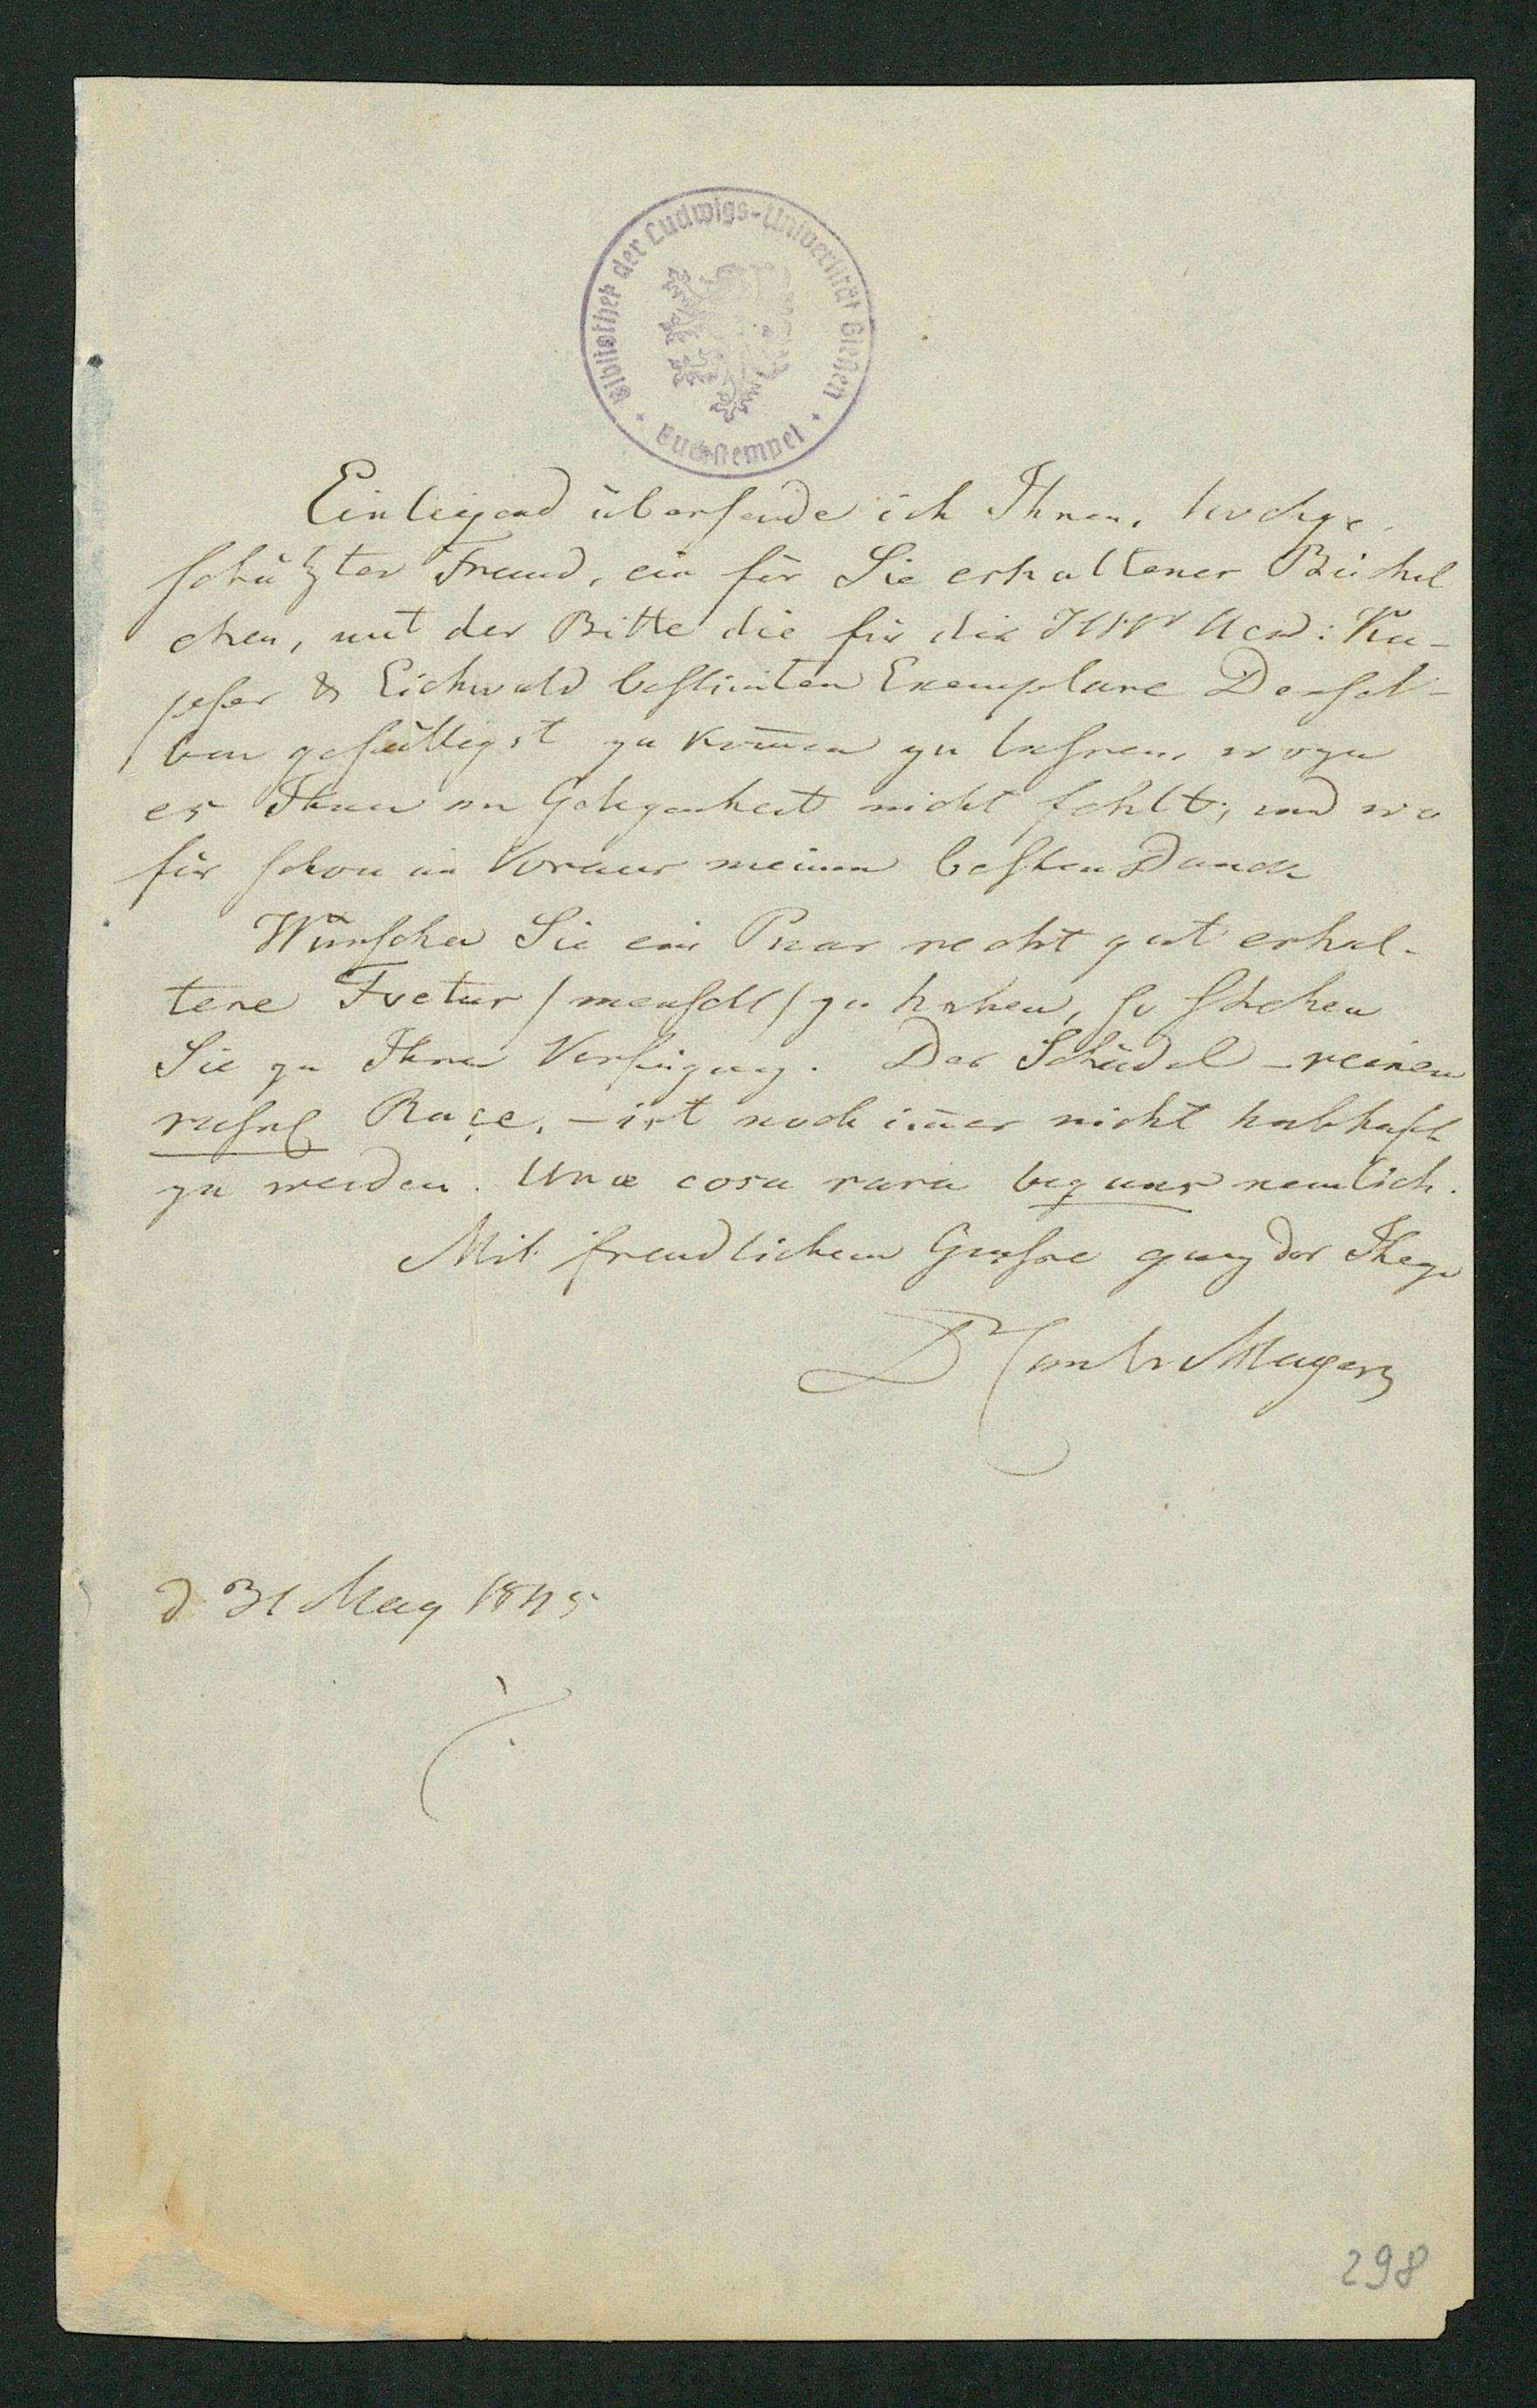 Bibliothek der Ludwigs-Universität Gießen
Buchstempel
Einliegend übersende ich Ihnen, hochge-
schätzter Freund, ein für Sie erhaltenes Büchel
chen, mit der Bitte die für die HHr Acad: Ku-
pfer & Eichwald bestim̄ten Exemplare Dessel-
ben gefälligst zu kom̄en zu lassen, wozu
es Ihnen an Gelegenheit nicht fehlt; und wo
für schon im Voraus meinen besten Danck
Wünschen Sie ein Paar recht gut erhal-
tene Foetus /menschl/ zu haben, so stehen
Sie zu Ihrer Verfügung. Der Schädel – reinen
russ Raçe, – ist noch im̄er nicht habhaft
zu werden. Una cosa rara bey uns nemlich.
Mit freundlichem Grusse ganz der Ihrge
Dr Mayer
d 31 May 1845
298